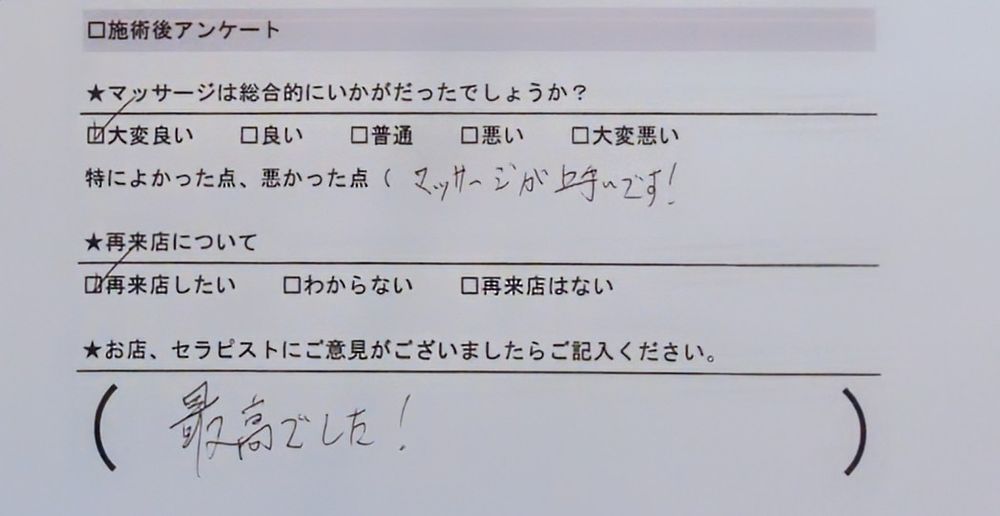 □施術後アンケート
★マッサージは総合的にいかがだったでしょうか？
☑大変良い □良い □普通 □悪い □大変悪い
特によかった点、悪かった点（ マッサージが上手いです!
★再来店について
☑再来店したい □わからない □再来店はない
★お店、セラピストにご意見がございましたらご記入ください。
（ 最高でした! ）